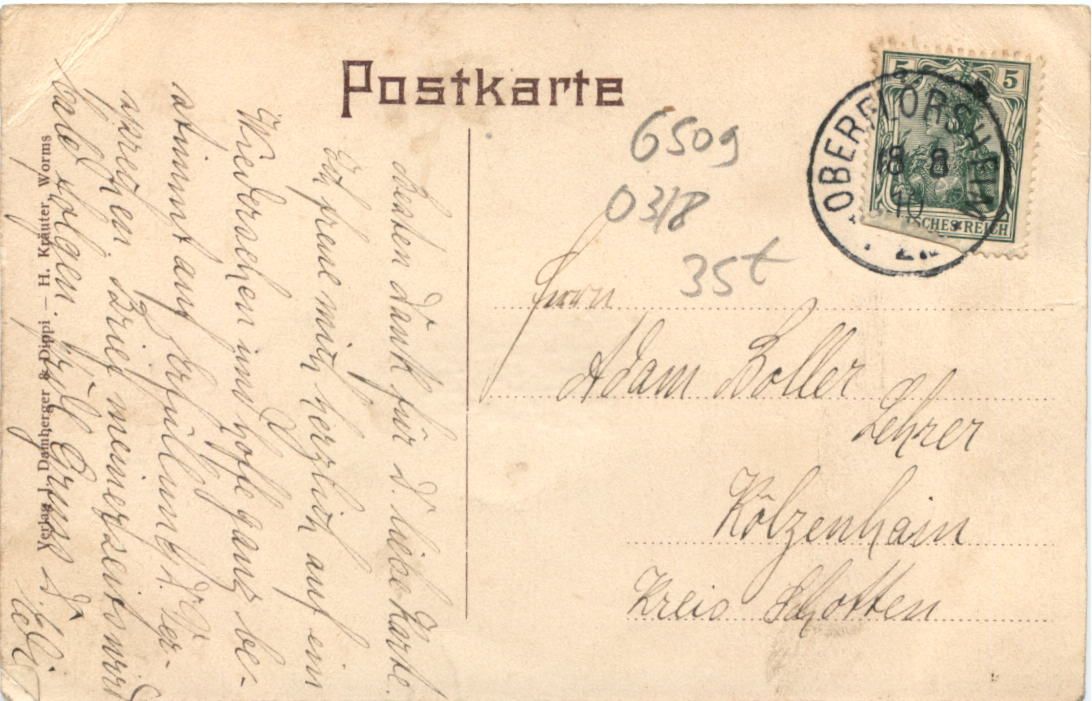 Postkarte
6509
0318
35t
OBERFLÖRSHEIM
18 8
10
5 5
DEUTSCHES REICH
Herrn
Adam Boller
Lehrer
Kölzenhain
Kreis Schotten
Besten Dank für d. liebe Karte.
Ich freue mich herzlich auf ein
Wiedersehen und hoffe ganz be-
stimmt auf Erfüllung d. Ver-
sprechen. Brief meinerseits wird
bald folgen. Grüß d.
Verlag Damberger & Dippi — H. Kräuter, Worms